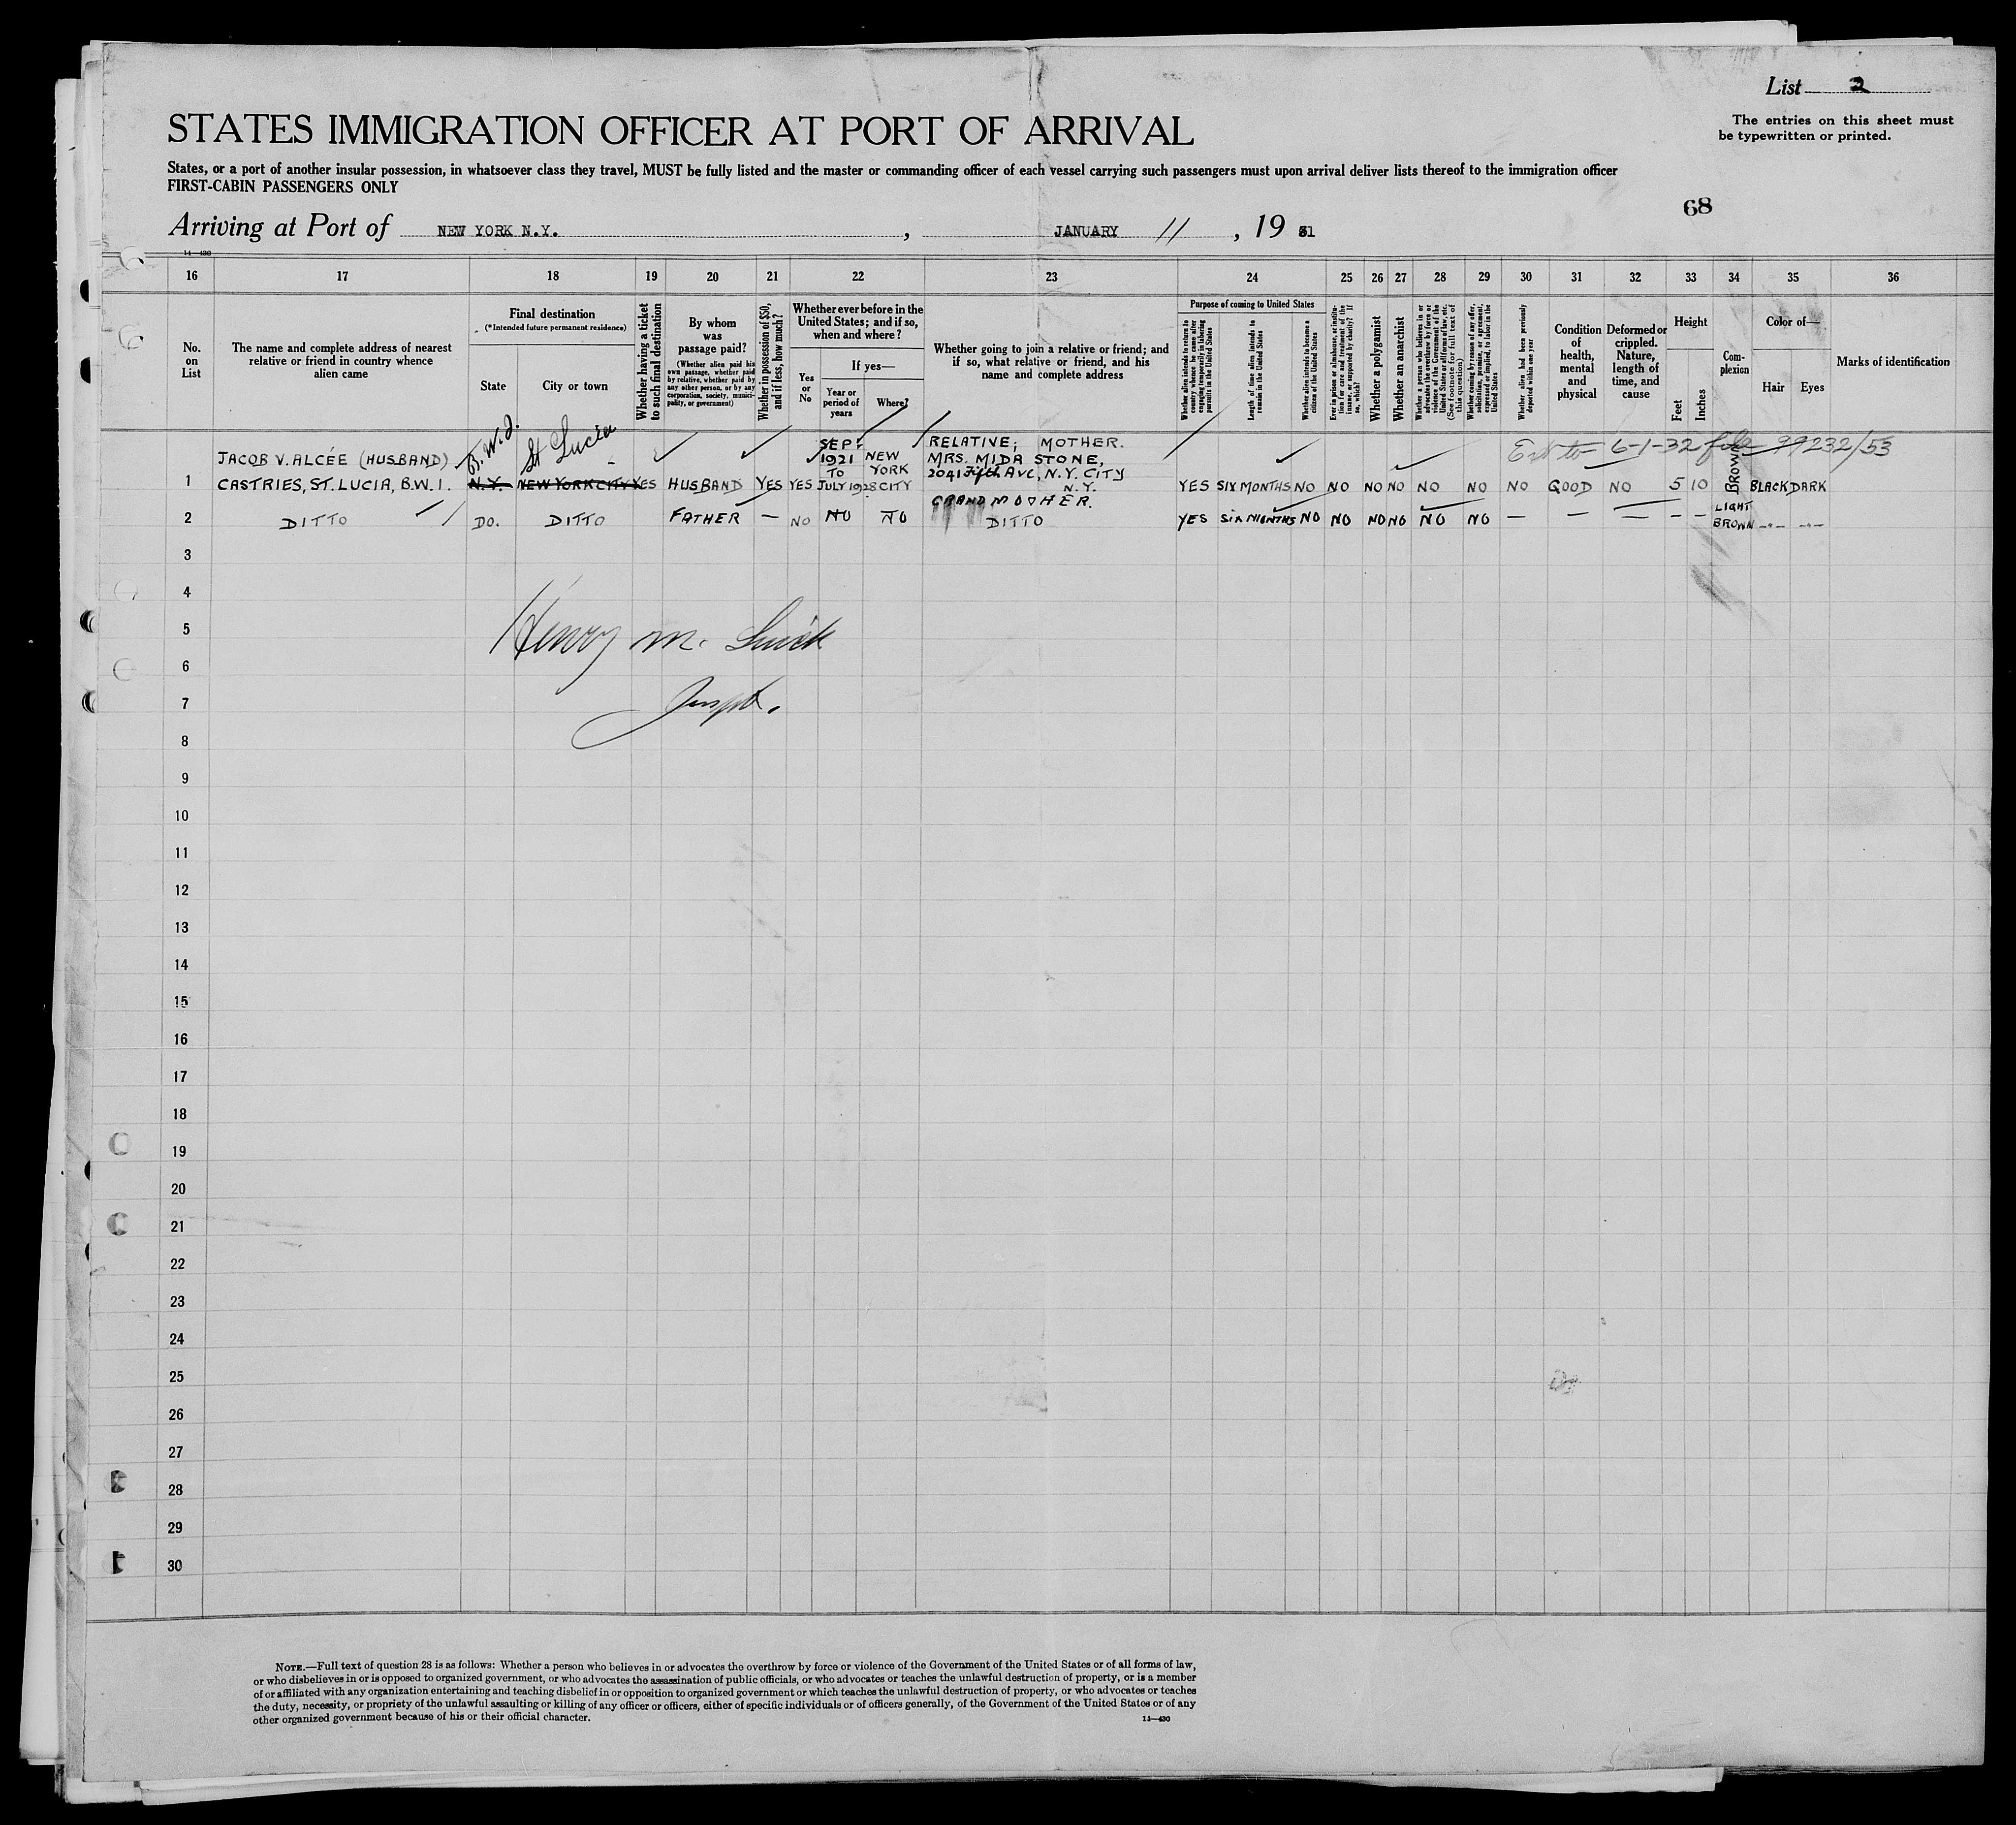 List 2
STATES IMMIGRATION OFFICER AT PORT OF ARRIVAL
The entries on this sheet must
be typewritten or printed.
States, or a port of another insular possession, in whatsoever class they travel, MUST be fully listed and the master or commanding officer of each vessel carrying such passengers must upon arrival deliver lists thereof to the immigration officer
FIRST-CABIN PASSENGERS ONLY
68
Arriving at Port of NEW YORK N.Y. , JANUARY 11 , 19 31
14—430
16 17 18 19 20 21 22 23 24 25 26 27 28 29 30 31 32 33 34 35 36
No.
on
List
The name and complete address of nearest
relative or friend in country whence
alien came
Final destination
(*Intended future permanent residence)
State
City or town
Whether having a ticket
to such final destination
By whom
was
passage paid?
(Whether alien paid his
own passage, whether paid
by relative, whether paid by
any other person, or by any
corporation, society, munici-
pality, or government)
Whether in possession of $50,
and if less, how much?
Whether ever before in the
United States; and if so,
when and where?
Yes
or
No
If yes—
Year or
period of
years
Where?
Whether going to join a relative or friend; and
if so, what relative or friend, and his
name and complete address
Purpose of coming to United States
Whether alien intends to return to
country whence he came after
engaging temporarily in laboring
pursuits in the United States
Length of time alien intends to
remain in the United States
Whether alien intends to become a
citizen of the United States
Ever in prison or almshouse, or institu-
tion for care and treatment of the
insane, or supported by charity? If
so, which?
Whether a polygamist
Whether an anarchist
Whether a person who believes in or
advocates the overthrow by force or
violence of the Government of the
United States or all forms of law, etc.
(See footnote for full text of
this question)
Whether coming by reason of any offer,
solicitation, promise, or agreement,
expressed or implied, to labor in the
United States
Whether alien had been previously
deported within one year
Condition
of
health,
mental
and
physical
Deformed or
crippled.
Nature,
length of
time, and
cause
Height
Feet
Inches
Com-
plexion
Color of—
Hair Eyes
Marks of identification
B.W.I. St Lucia
6-1-32 file 99232/53
JACOB V. ALCÉE (HUSBAND) SEP: 1921 TO NEW YORK RELATIVE; MOTHER.
MRS. MIDA STONE,
2041 Fifth AVE, N.Y. CITY
N.Y.
1 CASTRIES, ST. LUCIA, B.W.I. N.Y. NEW YORK CITY YES HUSBAND YES YES JULY 1928 CITY YES SIX MONTHS NO NO NO NO NO NO NO GOOD NO 5 10 BROWN BLACK DARK
GRANDMOTHER.
2 DITTO DO. DITTO FATHER — NO NO NO DITTO YES SIX MONTHS NO NO NO NO NO NO — — — — — LIGHT BROWN -"- -"-
3
4
Henry M.
5
6
7
8
9
10
11
12
13
14
15
16
17
18
19
20
21
22
23
24
25
26
27
28
29
30
NOTE.—Full text of question 28 is as follows: Whether a person who believes in or advocates the overthrow by force or violence of the Government of the United States or of all forms of law,
or who disbelieves in or is opposed to organized government, or who advocates the assassination of public officials, or who advocates or teaches the unlawful destruction of property, or is a member
of or affiliated with any organization entertaining and teaching disbelief in or opposition to organized government or which teaches the unlawful destruction of property, or who advocates or teaches
the duty, necessity, or propriety of the unlawful assaulting or killing of any officer or officers, either of specific individuals or of officers generally, of the Government of the United States or of any
other organized government because of his or their official character.
14—430